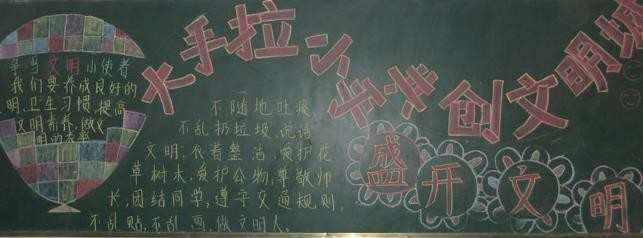 大手拉小手共创文明城
争当文明小使者
我们要养成良好的
明卫生习惯,提高
文明素养,做文
明的
不随地吐痰
不乱扔垃圾,说话
文明;衣着整洁,爱护花
草树木,爱护公物,尊敬师
长,团结同学,遵守交通规则,
不乱贴,不乱画,做文明人。
盛开文明